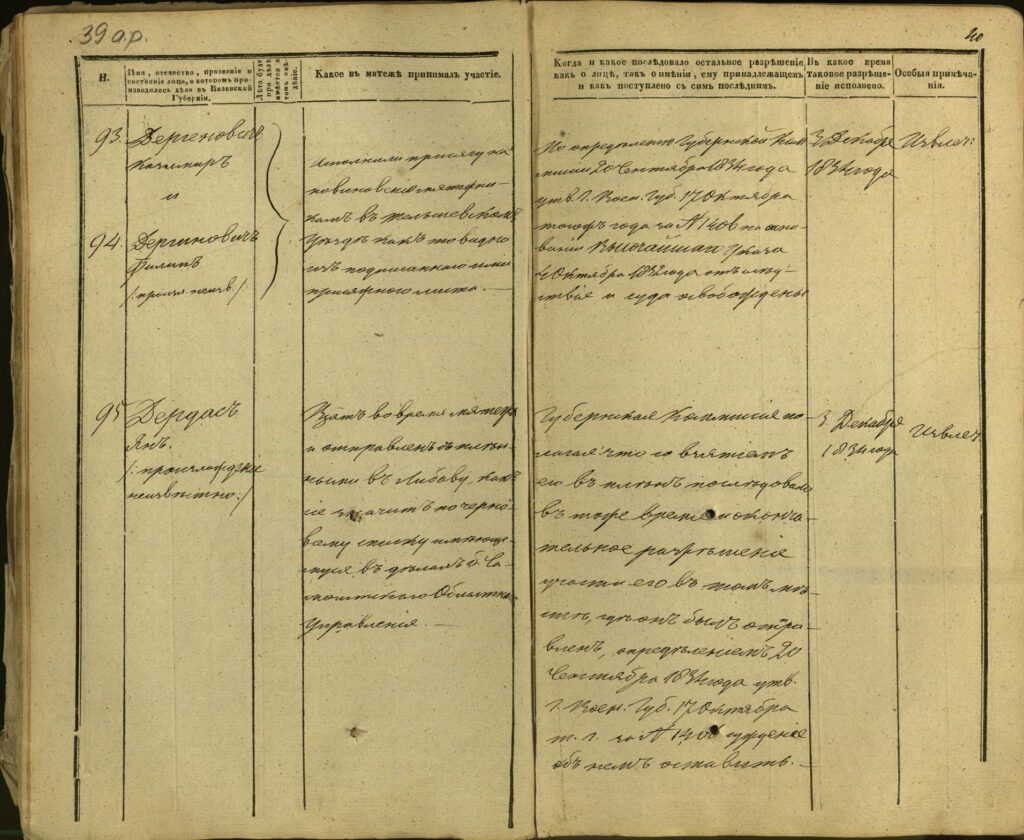 39 а.р.
40
Н.
Имя, отечество, прозваніе и
состояніе лица, о которомъ про-
изводилось дѣло въ Виленской
Губерніи.
Лѣта буде
при дѣлѣ
имѣется о
томъ свѣ-
дѣніе.
Какое въ мятежѣ принималъ участіе.
Когда и какое послѣдовало остальное разрѣшеніе
какъ о лицѣ, такъ о имѣніи, ему принадлежащемъ
и какъ поступлено съ симъ послѣднимъ.
Въ какое время
таковое разрѣше-
ніе исполнено.
Особыя примѣча-
нія.
93.
Дергеновичъ
Казимиръ
и
94.
Дергиновичъ
Филипъ
/: происх. неизв. :/
исполнили присягу на
повиновеніе мятежни-
камъ въ тельшевскомъ
Уѣздѣ какъ то видно
изъ подписаннаго ими
присяжного листа. —
По опредѣленію Губернской Ком-
мисіи 20 Сентября 1834 года
утв. Г. Воен. Губ. 17 Октября
тогож года за № 1406 на осно-
ваніи Высочайшаго Указа
4 Октября 1832 года отъ слѣд-
ствія и суда освобождены
3 Декабря
1834 года
Извлеч:
95
Дердасъ
Янъ.
/: происхожденіе
неизвѣстно :/
Взятъ во время мятежа
и отправленъ съ плѣн-
ными въ Либаву, как
сіе значитъ по черно-
вому списку имѣюще-
муся въ дѣлахъ б. Са-
мошитскаго Областна-
Управленія. —
Губернская Коммисія по-
лагая: что со взятіемъ
его въ плѣнъ послѣдовало
въ тоже время и оконча-
тельное разрѣшеніе
участи его въ томъ мѣ-
стѣ, гдѣ онъ былъ отпра-
вленъ, опредѣленіемъ 20
Сентября 1834 года утв.
Г. Воен. Губ. 17 Октября
т. г. за № 1406 сужденіе
объ немъ оставить. —
3 Декабря
1834 года
Извлеч